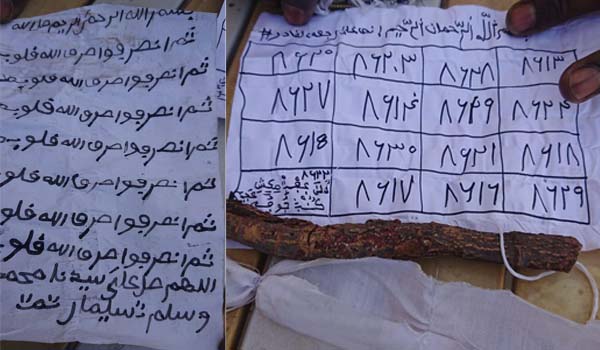 بسم الله الرحمن الرحيم
ثم انصرفوا صرف الله قلو
ثم انصرفوا صرف الله قلوبه
ثم انصرفوا صرف الله قلوبه
ثم انصرفوا صرف الله قلوبه
ثم انصرفوا صرف الله قلو
ثم انصرفوا صرف الله قلو
ثم انصرفوا صرف الله قلو
اللهم صل على سيدنا محمد
وسلم تسليما تمت
الله الرحمان الرحيم
٨٦١٣ ٨٦٢٨ ٨٦٢٠٣ ٨٦٢٥
٨٦٢٤ ٨٦١٩ ٨٦١٤ ٨٦٢٧
٨٦١٨ ٨٦٢١ ٨٦٣٠ ٨٦١٥
٨٦٢٩ ٨٦١٦ ٨٦١٧ ٨٦٢٢